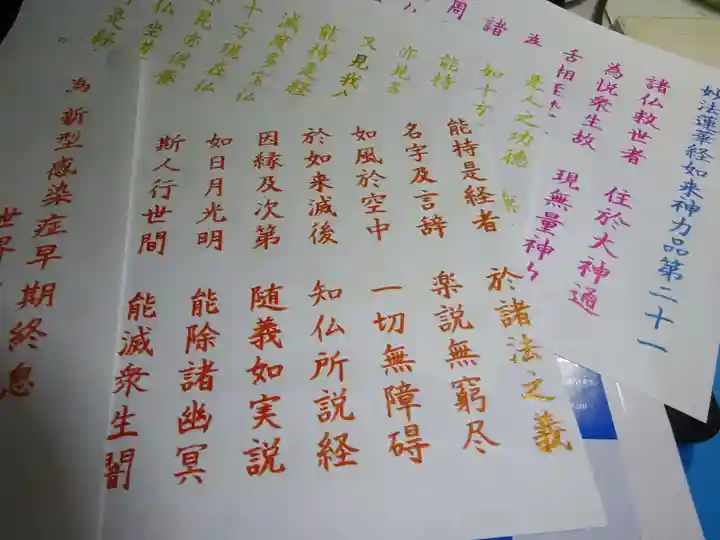 妙法蓮華経如来神力品第二十一
諸仏救世者 住於大神通
為悦衆生故 現無量神
舌相至
諸
周
是人之功徳 無
如十方
能持
亦見
又見我
能持是経
滅度多宝仏
十方現在仏
亦見亦供養
能持是経者 於諸法之義
名字及言辞 楽説無窮尽
如風於空中 一切無障碍
於如来滅後 知仏所説経
因縁及次第 随義如実説
如日月光明 能除諸幽冥
斯人行世間 能滅衆生闇
為新型感染症早期終息
世界